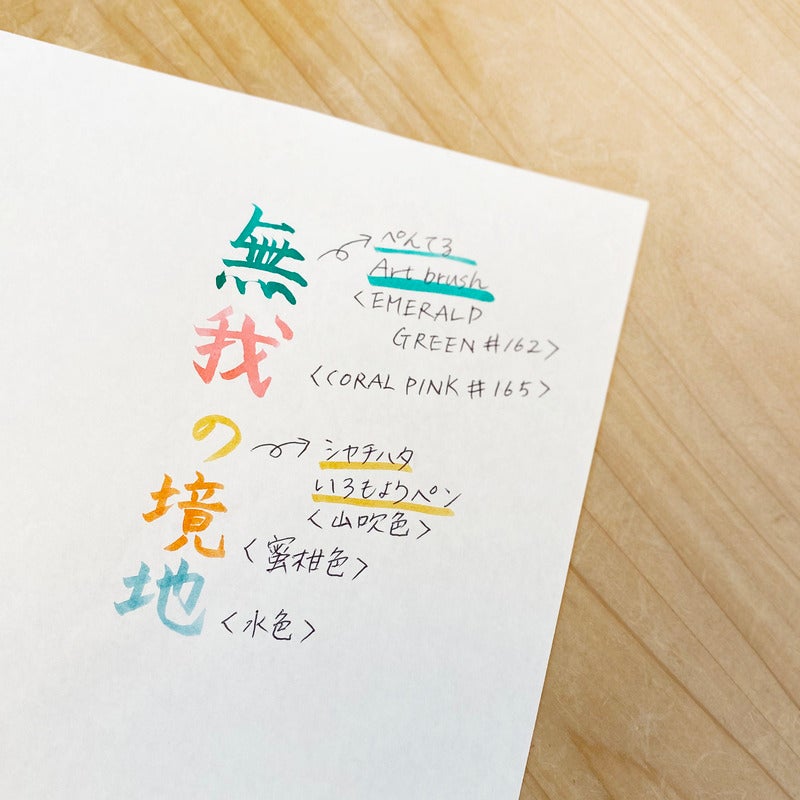 無我の境地
ぺんてる
Art brush
<EMERALD
GREEN #162>
<CORAL PINK #165>
シヤチハタ
いろもようペン
<山吹色>
<蜜柑色>
<水色>